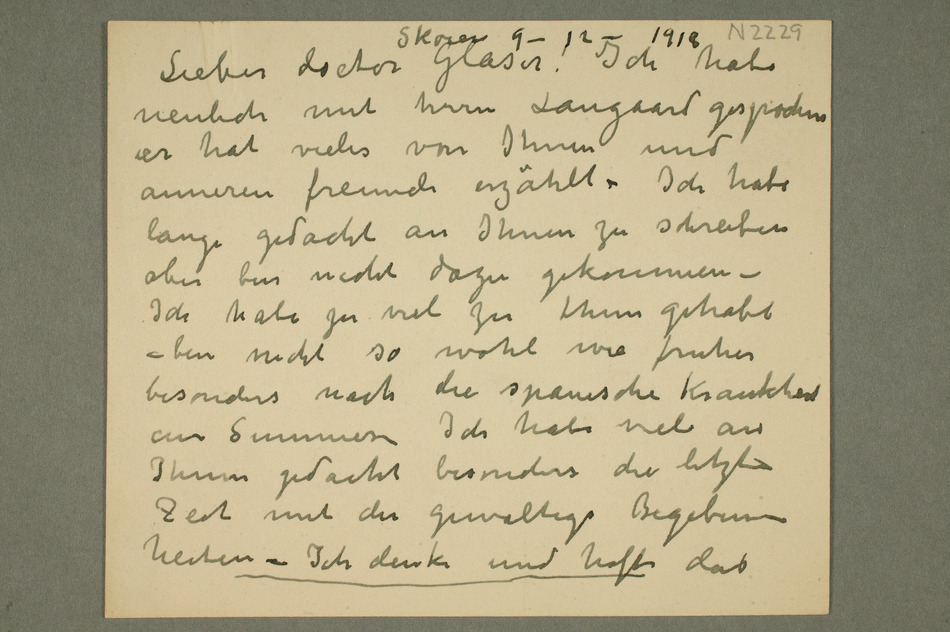 Skøien 9 – 12 – 1918 N2229
Lieber doctor Glaser! Ich habe
neulich mit herrn Langaard gesprochen
er hat vieles von Ihnen und
anneren freunde erzählt – Ich habe
lange gedacht an Ihnen zu schreiben
aber bin nicht dazu gekommen –
Ich habe zu viel zu thun gehabt
– bin nicht so wohl wie fruher
besonders nach die spanische Krankheit
im Summer – Ich habe viel an
Ihnen gedacht besonders die letzte
Zeit mit die gewaltige Begeben–
heiten – Ich denke und hoffe das